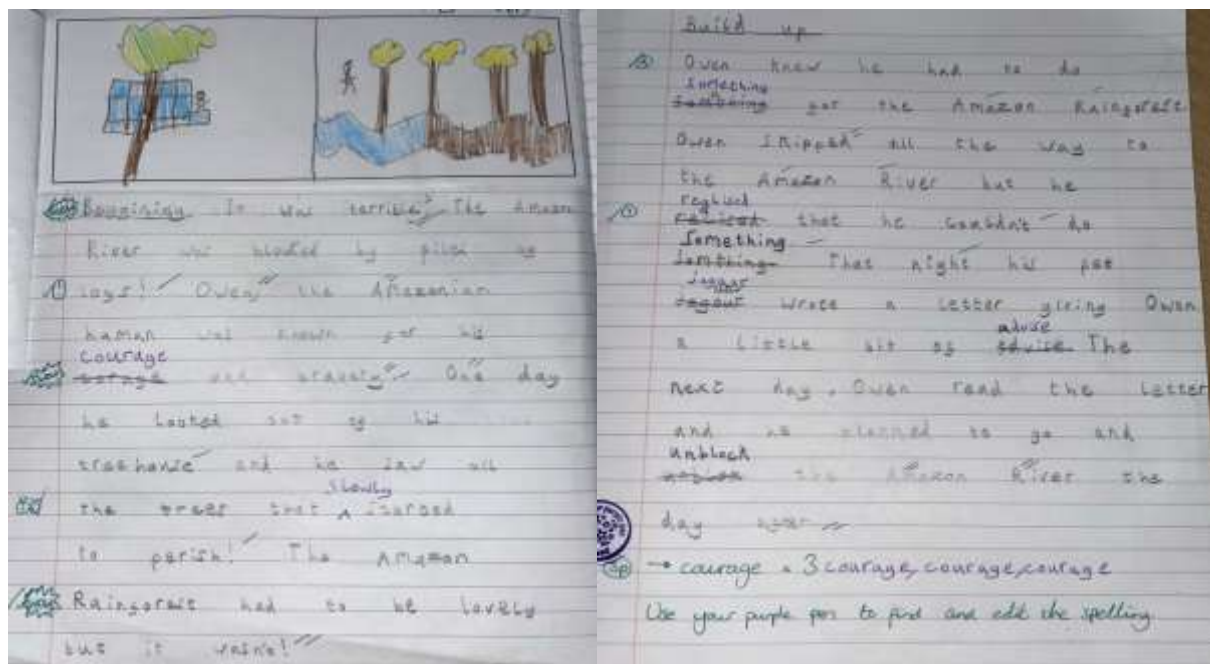 Beggining It was terrible, The Amazon
River was blocked by piles of
logs! Owen, the Amazonian
human was known for his
courage
corage and bravery. One day
he looked out of his
treehouse and he saw all
slowly
the trees that started
to perish! The Amazon
Rainforest had to be lovely
but it wasn't!
Build up
Owen knew he had to do
something
for the Amazon Rainforest
Owen skipped all the way to
the Amazon River but he
that he couldn't do
Something
Somthing. That night his pet
Jaguar
wrote a letter giving Owen
advise
a little bit of The
next day, Owen read the letter
and he planned to go and
unblock
the Amazon River the
day after
Sp → courage x 3 courage, courage, courage
Use your purple pen to find and edit the spelling.